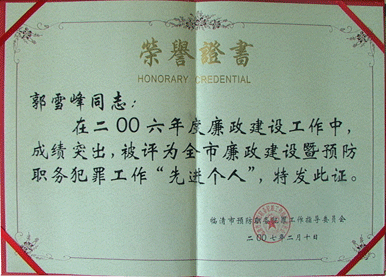 榮譽證書
HONORARY CREDENTIAL
郭雪峰同志：
在二00六年度廉政建设工作中，
成绩突出，被评为全市廉政建设暨预防
职务犯罪工作“先进个人”，特发此证。
临清市预防职务犯罪工作指导委员会
二00七年二月十日